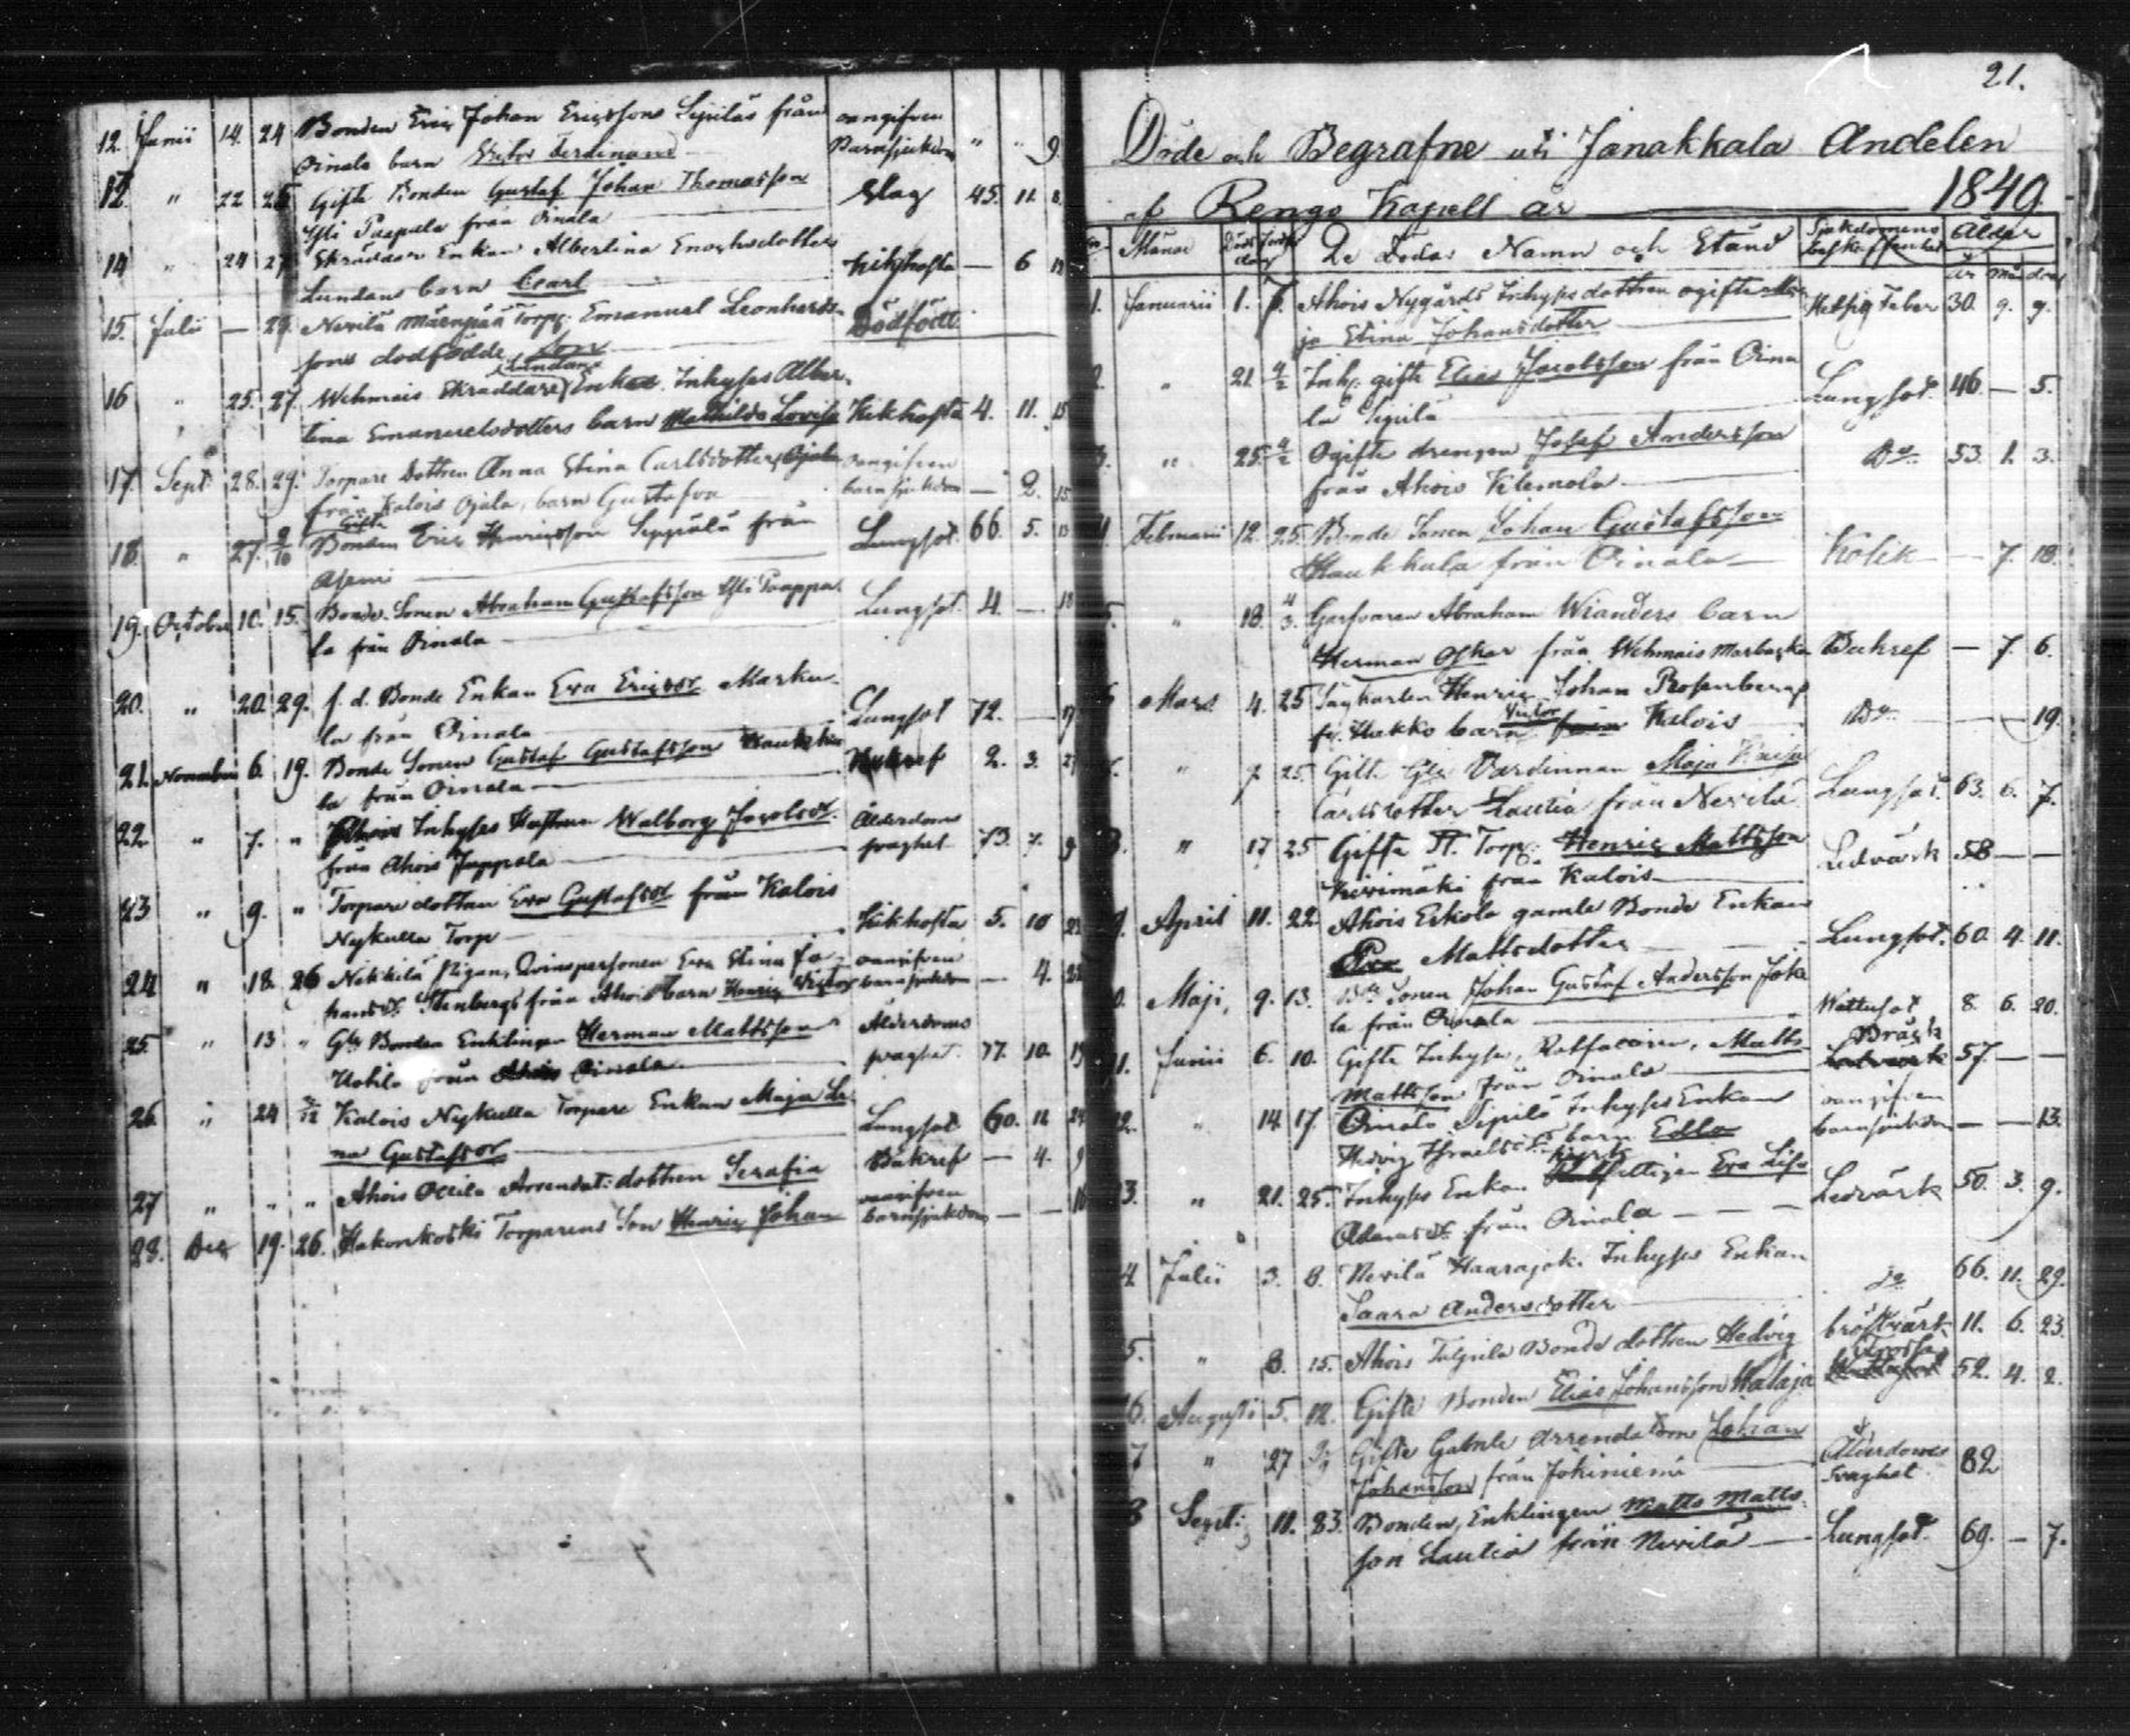 12. Junii 14. 24 Bonden Eric Johan Ericssons Sipilas från oangifven
Oinala barn Victor Ferdinand Barnsjukdom " " 9
12. " 22 25 Gifte Bonden Gustaf Johan Thomasson Slag 45. 11. 8.
Yli Paapala från Oinala
14 " 24 27 Skräddar Enkan Albertina Enochsdotters Kikhosta — 6
Lundans barn Carl
15. Julii — 29. Nevilä Mäenpää Torp: Emanuel Leonhards- Dödfödd
sons dodfödde son
16 " 25. 27 Wehmais Skraddare (Lundans) Enkas Inhyses Alber-
tina Emanuelsdotters barn Mathilda Lovisa Kikhosta 4. 11. 15
17. Sept 28. 29. Torpare Dottren Anna Stina Carlsdotters oangifven
från Kalois Ojala, barn Gustafva barnsjukdom — 2. 15
18. " 27. 9/10 Gifte Bonden Eric Henricsson Seppälä från Lungsot. 66. 5. 13
19. October 10. 15. Bonde Sonen Abraham Gustafsson Yli Paappa- Lungsot. 4. — 18
la från Oinala
20. " 20. 29. f. d. Bonde Enkan Eva Ericsdr Marku-
la från Oinala Lungsot 72. — 17
21. November 6. 19. Bonde Sonen Gustaf Gustafsson Haukku 2. 3. 27
la från Oinala
22 " 7. " Inhyses Hustrun Walborg Jacobsdr. Ålderdoms
från Ahois Jappala svaghet 73. 7. 9
23 " 9. " Torpare dottren Eva Gustafsdr från Kalois Kikhosta 5. 10
Nykulla Torp
24 " 18. 26 Nikkilä Pigan, Qvinspersonen Eva Stina Jo- oangifven
hansdr. Stenbergs från Ahois barn Henric Victor barnsjukdom — 4.
25. " 13 " Gle Bonden Enklingen Herman Mattsson Ålderdoms
Uotila från Oinala svaghet. 77. 10.
26. " 24 Kalois Nykulla Torpare Enkan Maja Le-
na Gustafsdr Lungsot 60. 11.
27 " " " Ahois Ollila Arrendat: dottren Serafia Bukref — 4. 9
28. Dec 19. 26. Hakonkoski Torparens Son Henric Johan oangifven
barnsjukdom — — 16
21.
Döde och Begrafne uti Janakkala Andelen
af Rengo Kapell år 1849.
Månad De Dödas Namn och Stånd Sjukdomens beskaffenhet Ålder
år mån dag
1. Januarii 1. 7. Ahois Nygårds Inhyses dottren ogifte Ma- Hetsig Feber 30. 9. 9.
ja Stina Johansdotter
2. " 21. 4/2 Inh: gifte Elias Jacobsson från Oina Lungsot. 46. — 5.
la Sipilä
3. " 25. 4/2 Ogifte drengen Josef Andersson Do. 53. 1. 3.
från Ahois Klemola
4. Februarii 12. 25. Bonde Sonen Johan Gustafsson
Haukkula från Oinala Kolik — 7. 18.
5. " 18. 4/3. Garfvaren Abraham Wianders barn
Herman Oskar från Wehmais Bukref — 7. 6.
6 Mars 4. 25 Henric Johan Rosenbergs
fr. Hakko barn Victor Kalois Do. — — 19.
7. " 7. 25. Gifte Gle Värdinnan Maja Kaisa Lungsot. 63. 6. 7.
Carlsdotter Lautia från Nevilä
8. " 17 25 Gifte Torp: Henric Mattsson Ledvärk 58 — —
Kiviimäki från Kalois
9. April 11. 22. Ahois Eskola gamle Bonde Enkan
Eva Mattsdotter Lungsot. 60. 4. 11.
10. Maji, 9. 13. Bde Sonen Johan Gustaf Andersson Joki Wattusot 8. 6. 20.
la från Oinala
11. Junii 6. 10. Gifte Inhyse, Rotfararen, Matts Bråck 57. — —
Mattsson från Oinala
12. " 14. 17. Oinala Sipilä Inhyses Enkan oangifven
Hedvig Israelsdr. barn Edla barnsjukdom — — 13.
13. " 21. 25. Inhyses Enkan Eva Lisa Ledvärk 50. 3. 9.
Adamsdr från Oinala
14. Julii 3. 8. Nevilä Haarajoki Inhyses Enkan
Saara Andersdotter do 66. 11. 29.
15. " 8. 15. Ahois Talpila Bonde dottren Hedvig bröstvärk 11. 6. 23.
16. Augusti 5. 12. Gifte Bonden Elias Johansson Walaja 52. 4. 2.
7 " 27 Gifte Gamle Arrendatorn Johan Ålderdoms
Johansson från Jokiniemi svaghet 82
8 Sept: 11. 23. Bonden, Enklingen Matts Matts-
son Lautia från Nevilä Lungsot. 69. — 7.